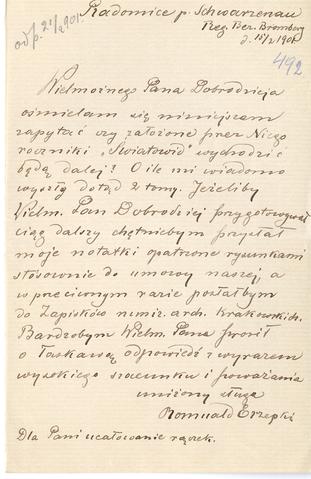 odp. 21/2 901.
Radomice p. Schwarzenau
Reg. Bez. Bromberg
d. 15/2 1901
492
Wielmożnego Pana Dobrodzieja
ośmielam się niniejszem
zapytać czy założone przez Niego
roczniki „Światowid" wychodzić
będą dalej? O ile mi wiadomo
wyszły dotąd 2 tomy. Jeżeliby
Wielm. Pan Dobrodziej przygotowywał
ciąg dalszy chętniebym przysłał
moje notatki opatrzone rysunkami
stosownie do umowy naszej, a
w przeciwnym razie posłałbym
do Zapisków numiz. arch. Krakowskich.
Bardzobym Wielm. Pana prosił
o łaskawą odpowiedź z wyrazem
wysokiego szacunku i poważania
uniżony sługa
Romuald Erzepki
Dla Pani ucałowanie rączek.